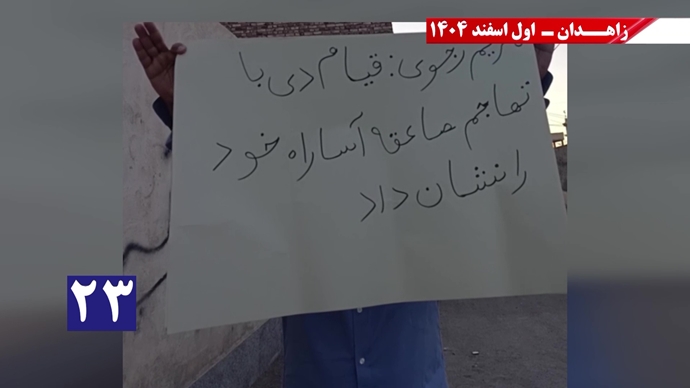 زاهـدان ـ اول اسفند ۱۴۰۴
مریم رجوی: قیام دی با
تهاجم صاعقه آسا راه خود
را نشان داد
۲۳